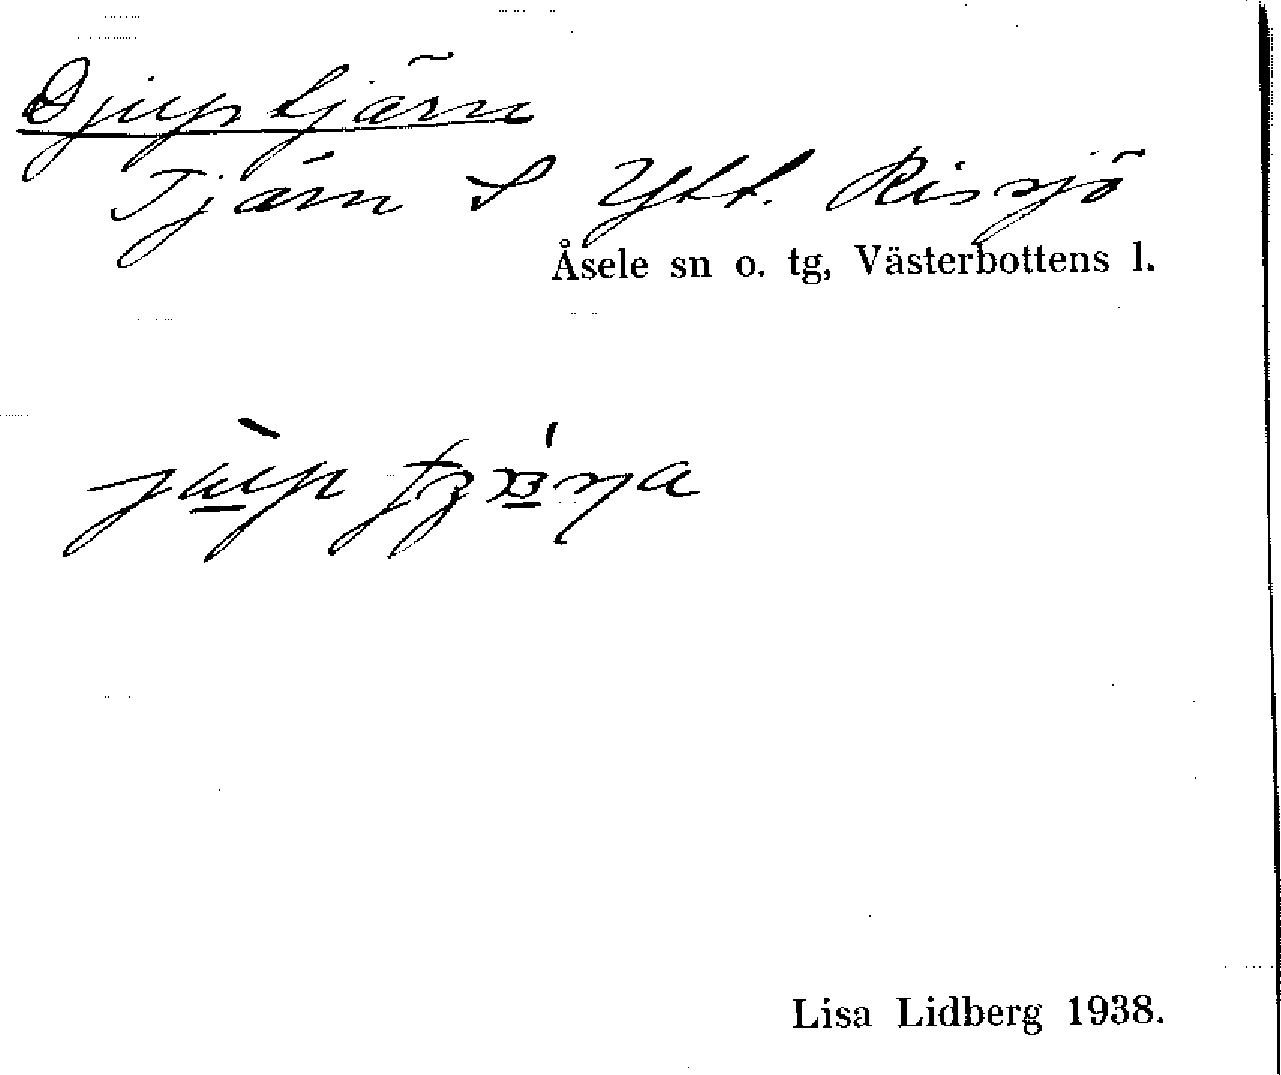 Djuptjärn
Tjärn S Ytt. Rissjö
Åsele sn o. tg, Västerbottens l.
Lisa Lidberg 1938.